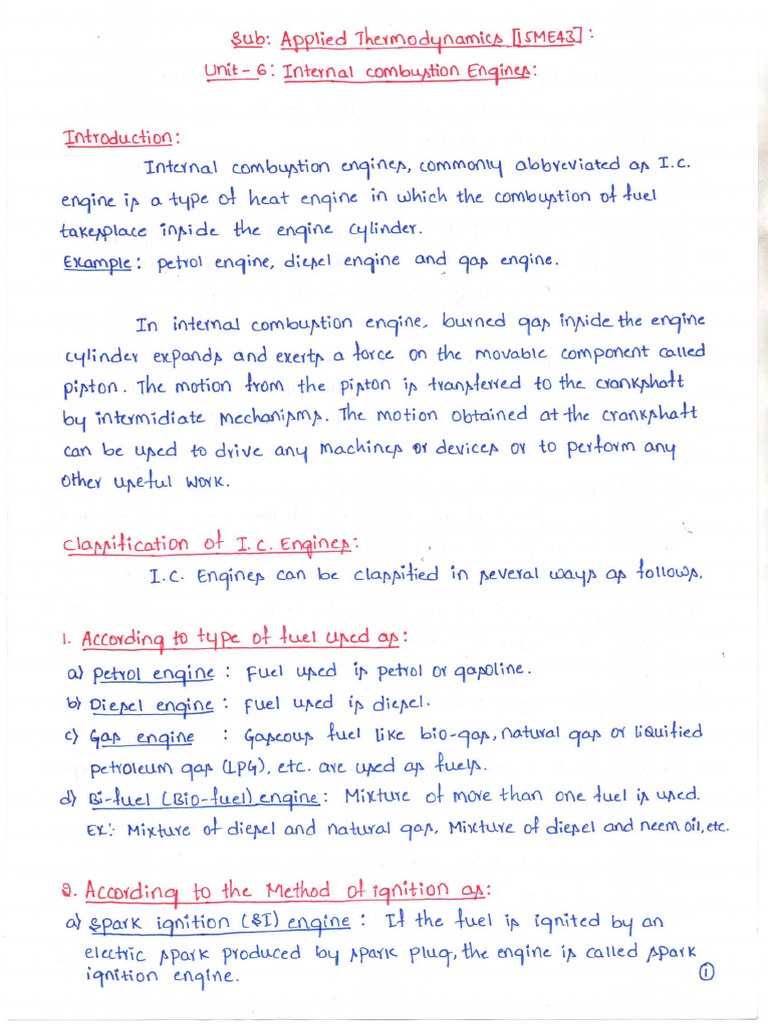 Sub: Applied Thermodynamics [15ME43]:
Unit-6: Internal combustion Engines:
Introduction:
Internal combustion engines, commonly abbreviated as I.C.
engine is a type of heat engine in which the combustion of fuel
takesplace inside the engine cylinder.
Example: petrol engine, diesel engine and gas engine.
In internal combustion engine, burned gas inside the engine
cylinder expands and exerts a force on the movable component called
piston. The motion from the piston is transferred to the crankshaft
by intermidiate mechanisms. The motion obtained at the crankshaft
can be used to drive any machines or devices or to perform any
other useful work.
Classification of I.C. Engines:
I.C. Engines can be classified in several ways as follows.
1. According to type of fuel used as:
a) Petrol engine : Fuel used is petrol or gasoline.
b) Diesel engine : Fuel used is diesel.
c) Gas engine : Gaseous fuel like bio-gas, natural gas or liquified
petroleum gas (LPG), etc. are used as fuels.
d) Bi-fuel (Bio-fuel) engine : Mixture of more than one fuel is used.
Ex:- Mixture of diesel and natural gas, Mixture of diesel and neem oil, etc.
2. According to the Method of ignition as:
a) Spark ignition (SI) engine : If the fuel is ignited by an
electric spark produced by spark plug, the engine is called spark
ignition engine.
1